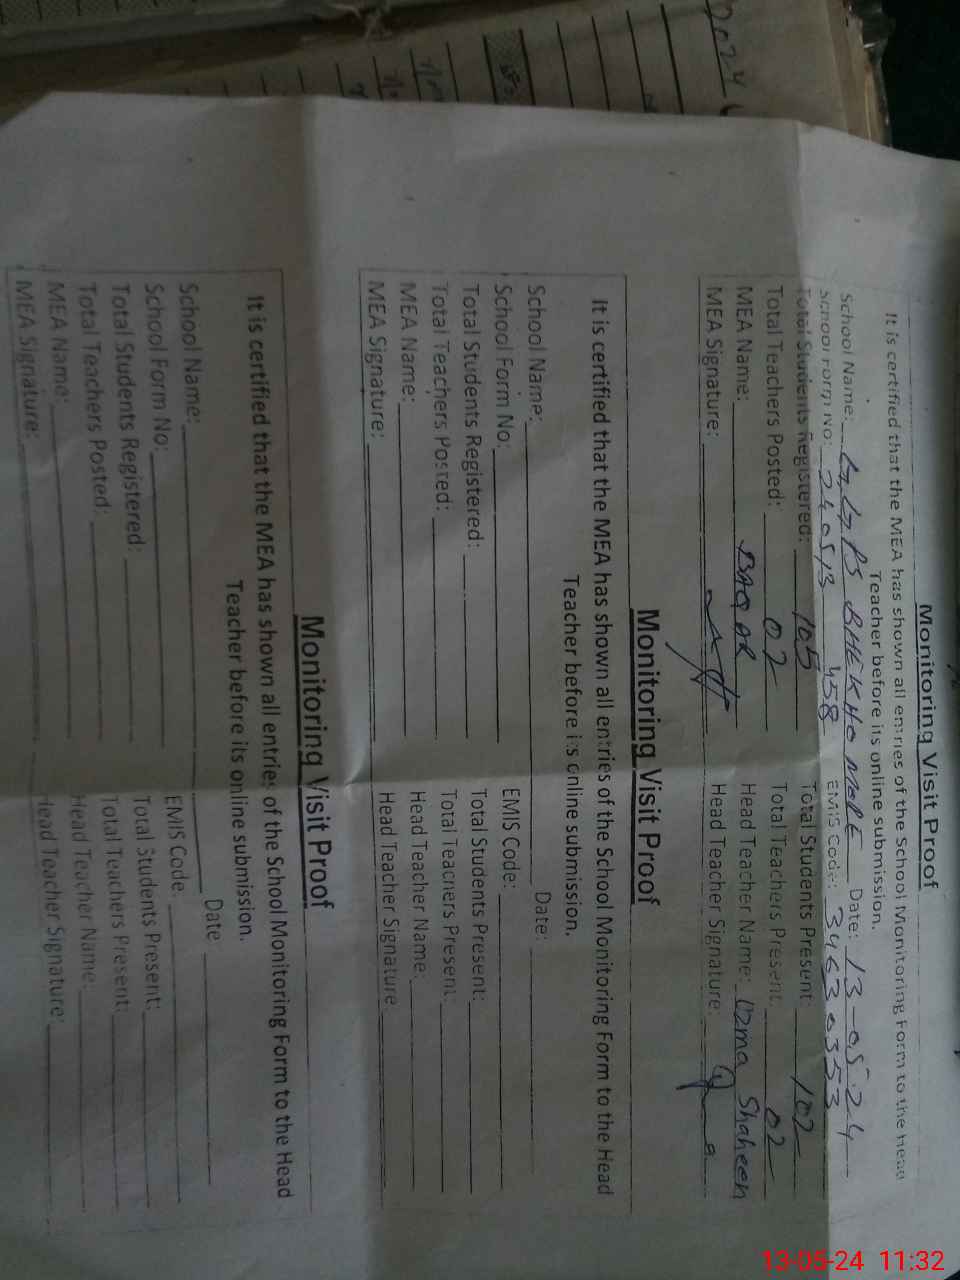 2024
Monitoring Visit Proof
It is certified that the MEA has shown all entries of the School Monitoring Form to the Head
Teacher before its online submission.
School Name: G.G.PS BHEKHO MORE Date: 13-05-24
School Form No: 240513 458 EMIS Code: 34630353
Total Students Registered: 105 Total Students Present: 102
Total Teachers Posted: 02 Total Teachers Present: 02
MEA Name: BAQAR Head Teacher Name: Uzma Shaheen
MEA Signature: Head Teacher Signature:
Monitoring Visit Proof
It is certified that the MEA has shown all entries of the School Monitoring Form to the Head
Teacher before its online submission.
School Name: Date:
School Form No: EMIS Code:
Total Students Registered: Total Students Present:
Total Teachers Posted: Total Teachers Present:
MEA Name: Head Teacher Name:
MEA Signature: Head Teacher Signature
Monitoring Visit Proof
It is certified that the MEA has shown all entries of the School Monitoring Form to the Head
Teacher before its online submission.
School Name: Date
School Form No: EMIS Code.
Total Students Registered: Total Students Present:
Total Teachers Posted: Total Teachers Present:
MEA Name: Head Teacher Name:
MEA Signature: Head Teacher Signature:
13-05-24 11:32